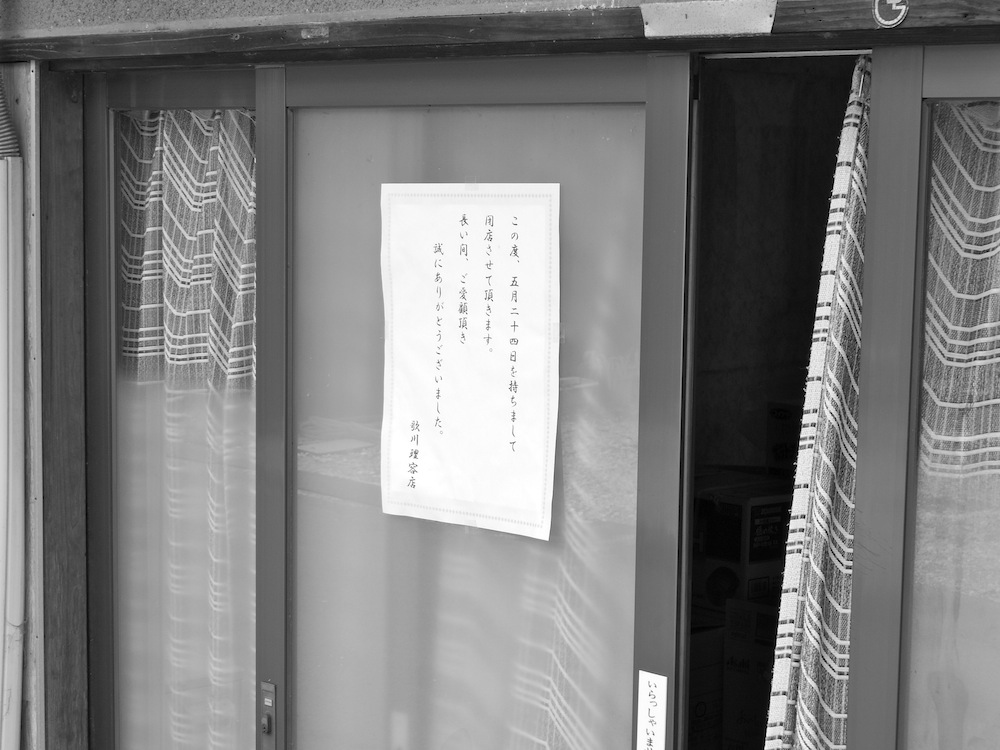 この度、五月二十四日を持ちまして
閉店させて頂きます。
長い間、ご愛顧頂き
誠にありがとうございました。
歌川理容店
いらっしゃいま